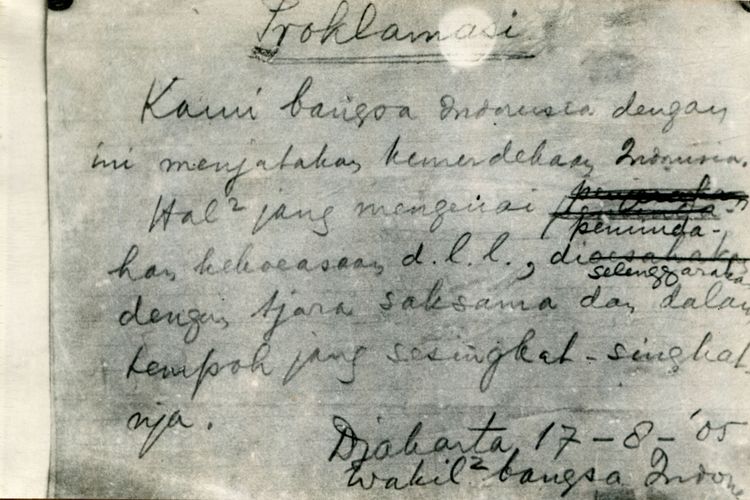 Proklamasi
Kami bangsa Indonesia dengan
ini menjatakan kemerdekaan Indonesia.
Hal² jang mengenai
peminda-
han kekoeasaan d.l.l., di
selenggaraka
dengan tjara saksama dan dalam
tempoh jang sesingkat-singkat
nja.
Djakarta, 17 - 8 - '05
Wakil² bangsa Indon